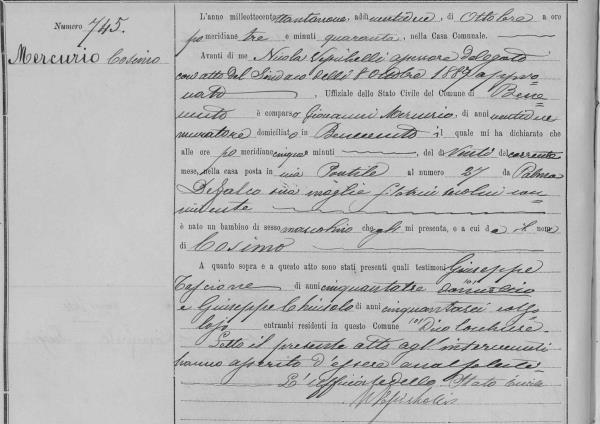 Numero 745.
Mercurio Cosimo
L'anno milleottocento ottantanove, addì ventidue, di Ottobre a ore
po meridiane tre e minuti quaranta, nella Casa Comunale.
Avanti di me Nicola assessore delegato
con atto del Sindaco delli 8 Ottobre 1887 appro
vato, Uffiziale dello Stato Civile del Comune di Bene
vento è comparso Giovanni Mercurio, di anni ventidue
muratore domiciliato in Benevento il quale mi ha dichiarato che
alle ore po meridiane cinque e minuti, del dì Venti del corrente
mese, nella casa posta in via Pontile al numero 27 da Palma
DeFalco sua moglie seco lui con
vivente
è nato un bambino di sesso maschino che egli mi presenta, e a cui dà il nome
di Cosimo
A quanto sopra e a questo atto sono stati presenti quali testimoni Giuseppe
Tescione di anni cinquantatre
e Giuseppe di anni cinquantasei
entrambi residenti in questo Comune
Letto il presente atto agl'intervenuti
hanno asserito d'essere analfabeti
L'Uffiziale dello Stato Civile